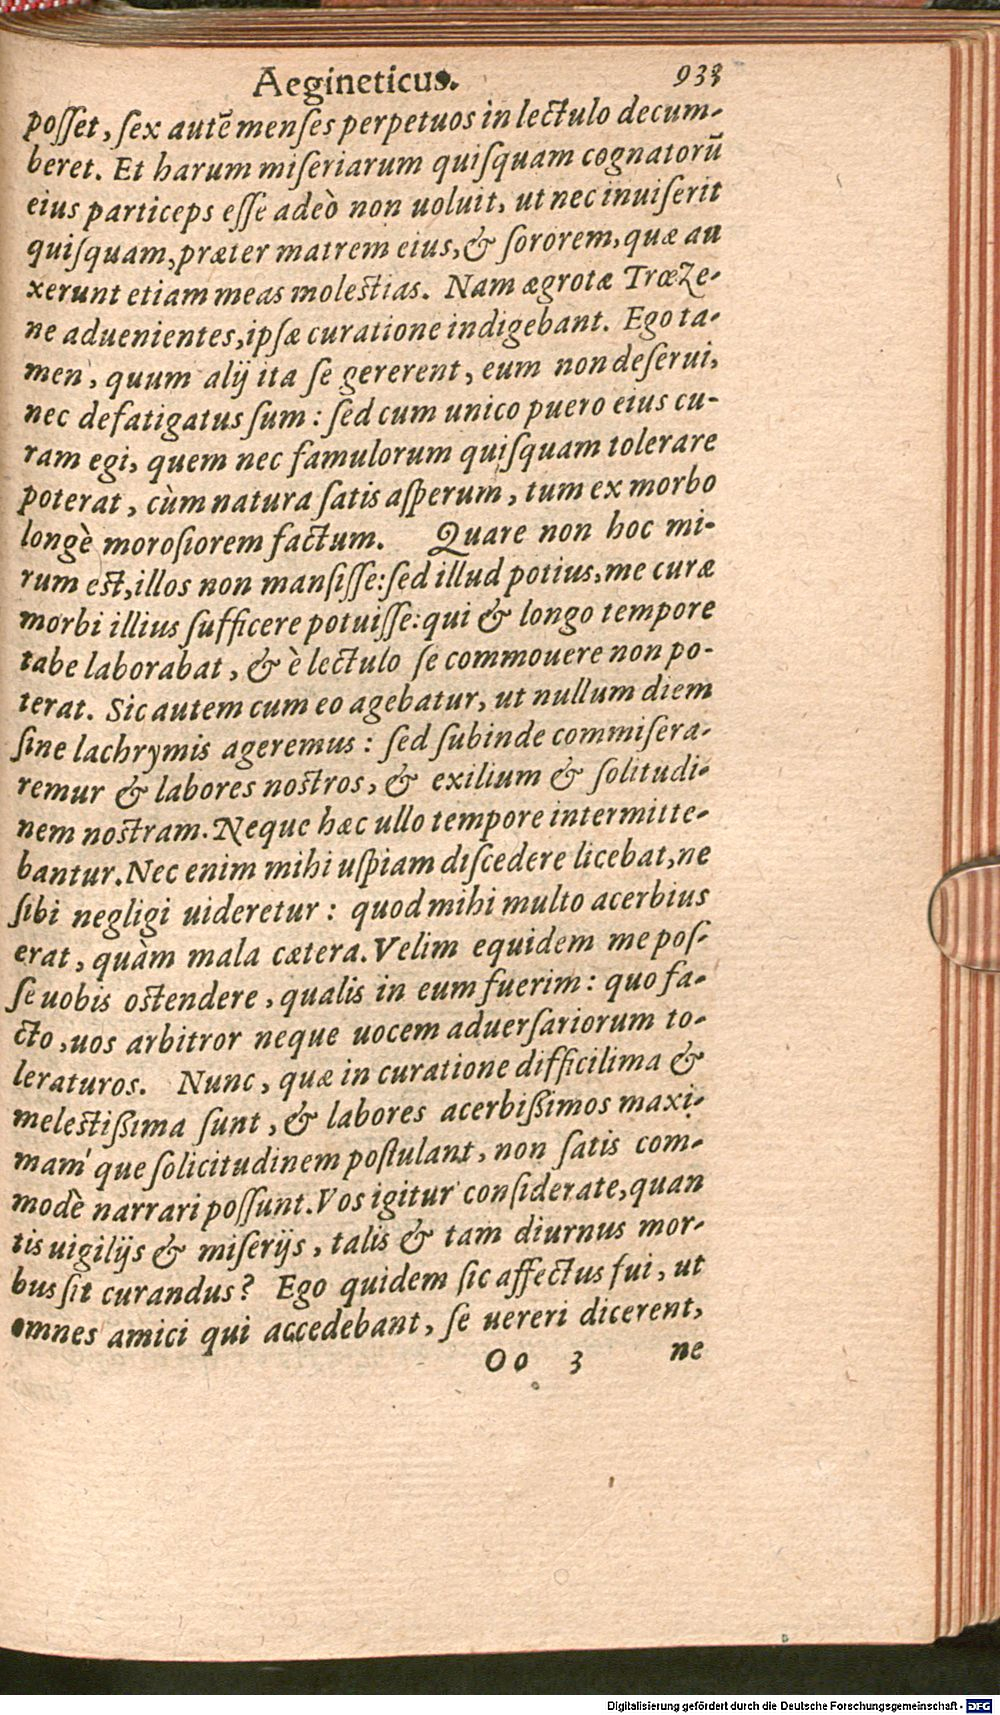 Aegineticus. 933
poſſet, ſex autẽ menſes perpetuos in lectulo decum-
beret. Et harum miſeriarum quiſquam cognatorũ
eius particeps eſſe adeò non uoluit, ut nec inuiſerit
quiſquam, præter matrem eius, & ſororem, quæ au
xerunt etiam meas moleſtias. Nam ægrotæ Trœze-
ne aduenientes, ipſæ curatione indigebant. Ego ta-
men, quum alij ita ſe gererent, eum non deſerui,
nec defatigatus ſum: ſed cum unico puero eius cu-
ram egi, quem nec famulorum quiſquam tolerare
poterat, cùm natura ſatis aſperum, tum ex morbo
longè moroſiorem factum. Quare non hoc mi-
rum eſt, illos non manſiſſe: ſed illud potius, me curæ
morbi illius ſufficere potuiſſe: qui & longo tempore
tabe laborabat, & è lectulo ſe commouere non po-
terat. Sic autem cum eo agebatur, ut nullum diem
ſine lachrymis ageremus: ſed ſubinde commiſera-
remur & labores noſtros, & exilium & ſolitudi-
nem noſtram. Neque hæc ullo tempore intermitte-
bantur. Nec enim mihi uſpiam diſcedere licebat, ne
ſibi negligi uideretur: quod mihi multo acerbius
erat, quàm mala cætera. Velim equidem me poſ-
ſe uobis oſtendere, qualis in eum fuerim: quo fa-
cto, uos arbitror neque uocem aduerſariorum to-
leraturos. Nunc, quæ in curatione difficilima &
meleſtißima ſunt, & labores acerbißimos maxi-
mam' que ſolicitudinem poſtulant, non ſatis com-
modè narrari poſſunt. Vos igitur conſiderate, quan
tis uigilijs & miſerijs, talis & tam diurnus mor-
bus ſit curandus? Ego quidem ſic affectus fui, ut
omnes amici qui accedebant, ſe uereri dicerent,
Oo 3 ne
Digitalisierung gefördert durch die Deutsche Forschungsgemeinschaft - DFG